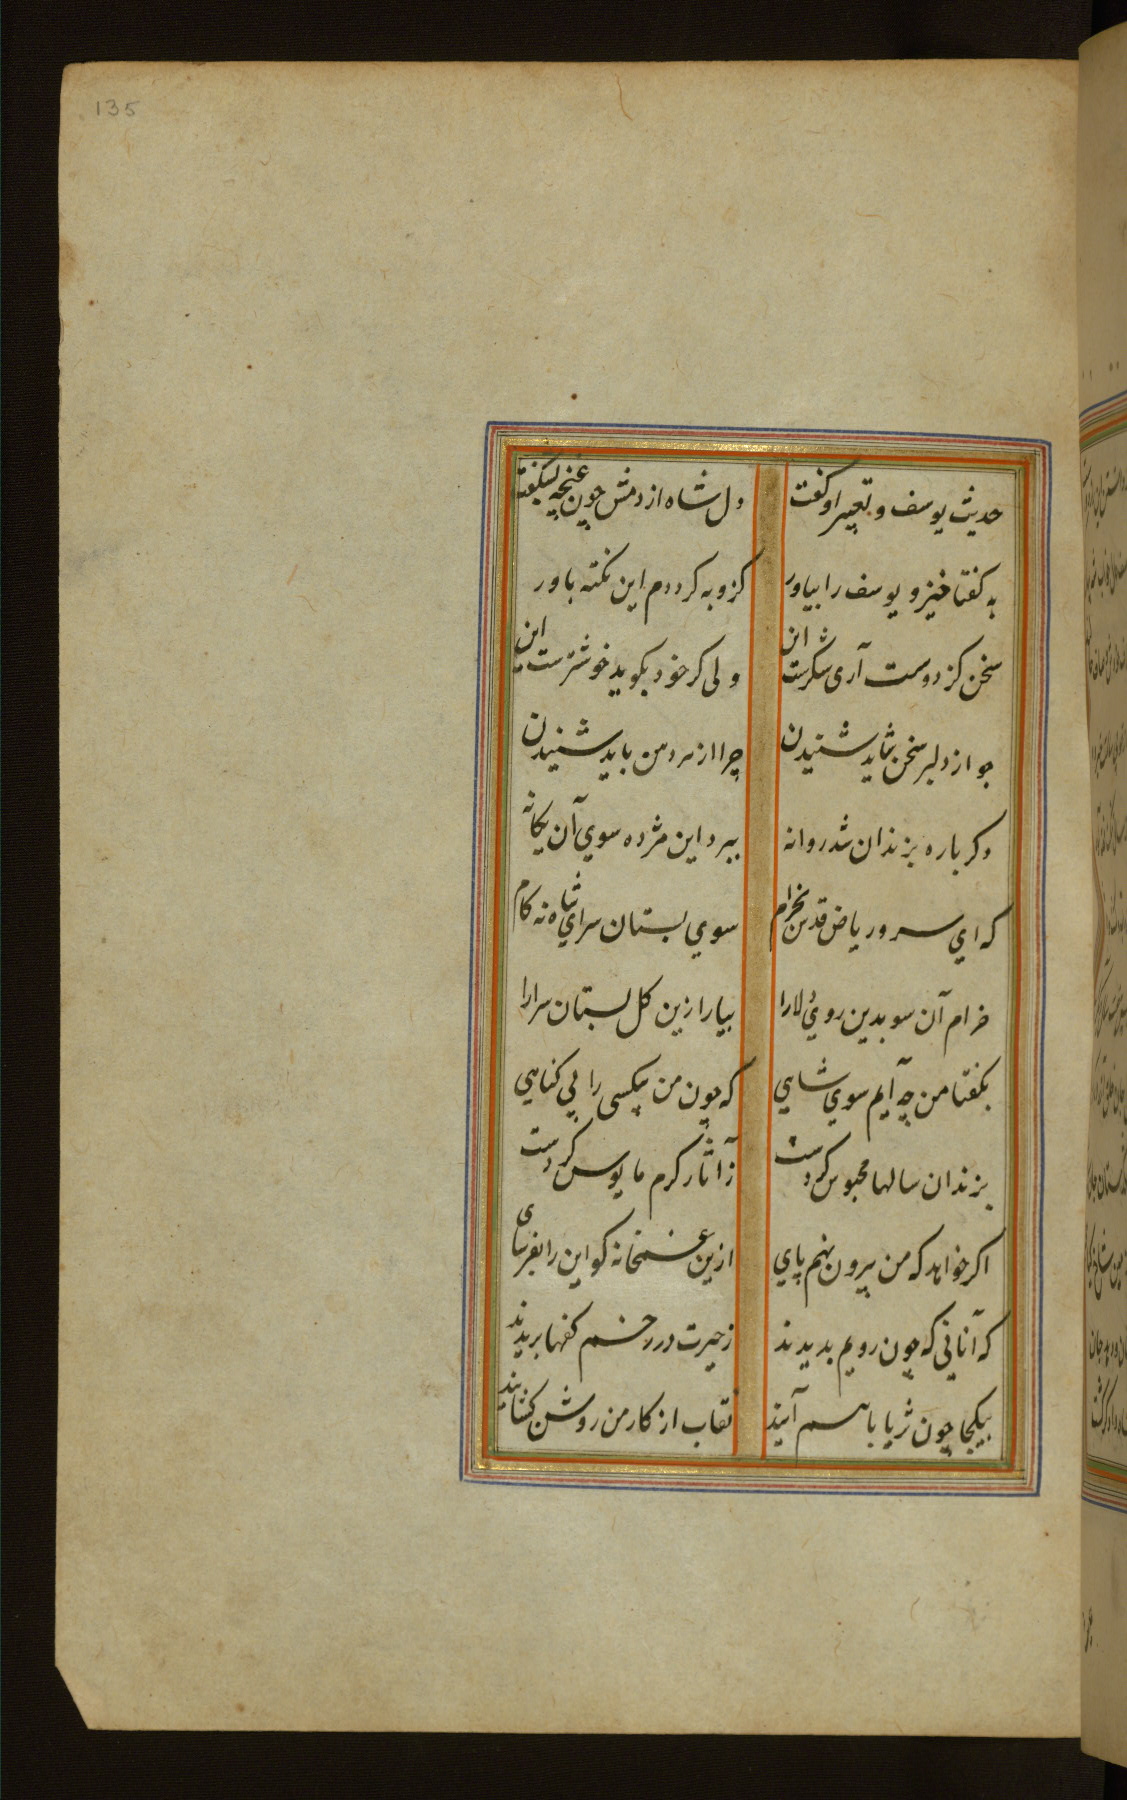 135
حدیث یوسف و تعبیر او گفت دل شاه از دمش چون غنچه بشکفت
بگفتا خیز و یوسف را بیاور کزو به گرددم این نکته باور
سخن کز دوست آری شکرست آن ولی گر خود بگوید خوشترست این
چو از دلبر سخن شاید شنیدن چرا از هر دهن باید شنیدن
دگر باره بزندان شد روانه ببرد این مژده سوی آن یگانه
که ای سرو ریاض قدس بخرام سوی بستان سرای شاه نه گام
خرام آن سو بدین روی دلارا بیارا زین گل بستان سرا را
بگفتا من چه آیم سوی شاهی که چون من بیکسی را بی گناهی
بزندان سالها محبوس کردست ز آثار کرم مایوس کردست
اگر خواهد که من بیرون نهم پای ازین غمخانه گو این را بفرمای
که آنانی که چون رویم بدیدند ز حیرت در رخم کفها بریدند
بیکجا چون ثریا با هم آیند نقاب از کار من روشن گشایند